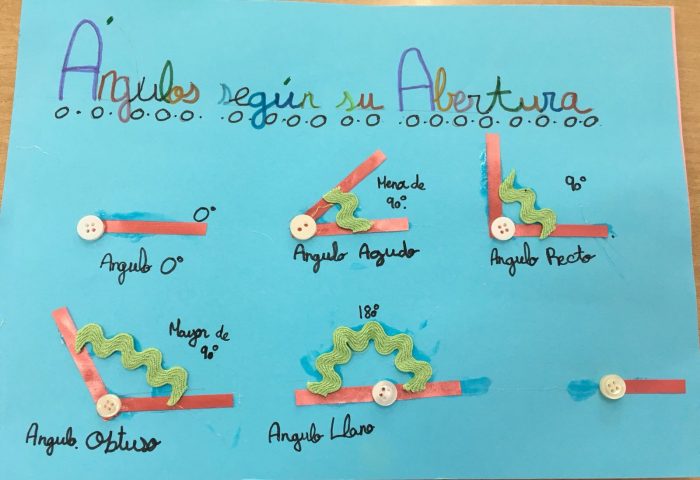 Ángulos según su Abertura
0°
Angulo 0°
Menor de
90°
Angulo Agudo
90°
Angulo Recto
Mayor de
90°
Angulo. Obtuso
180°
Angulo Llano